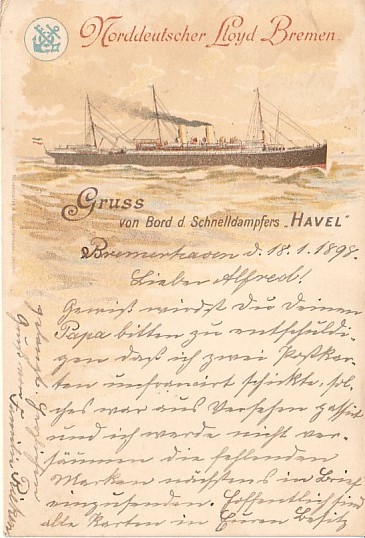 Norddeutscher Lloyd Bremen.
Gruss
von Bord d. Schnelldampfers „HAVEL"
Bremerhaven d. 18.1.1898.
Lieber Alfred!
Gewiß wirst Du Deinen
Papa bitten zu entschuldi-
gen daß ich zwei Postkar-
ten unfrancirt schickte, sol-
ches war aus Versehen passirt
und ich werde nicht ver-
säumen die fehlenden
Marken nächstens in Brief
einzusenden. Hoffentlich sind
alle Karten in Euren Besitz
gelangt
Gruss von Familie